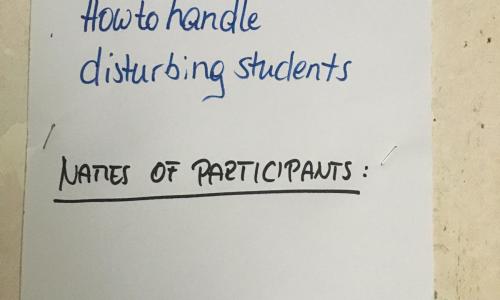 How to handle
disturbing students
NAMES OF PARTICIPANTS: